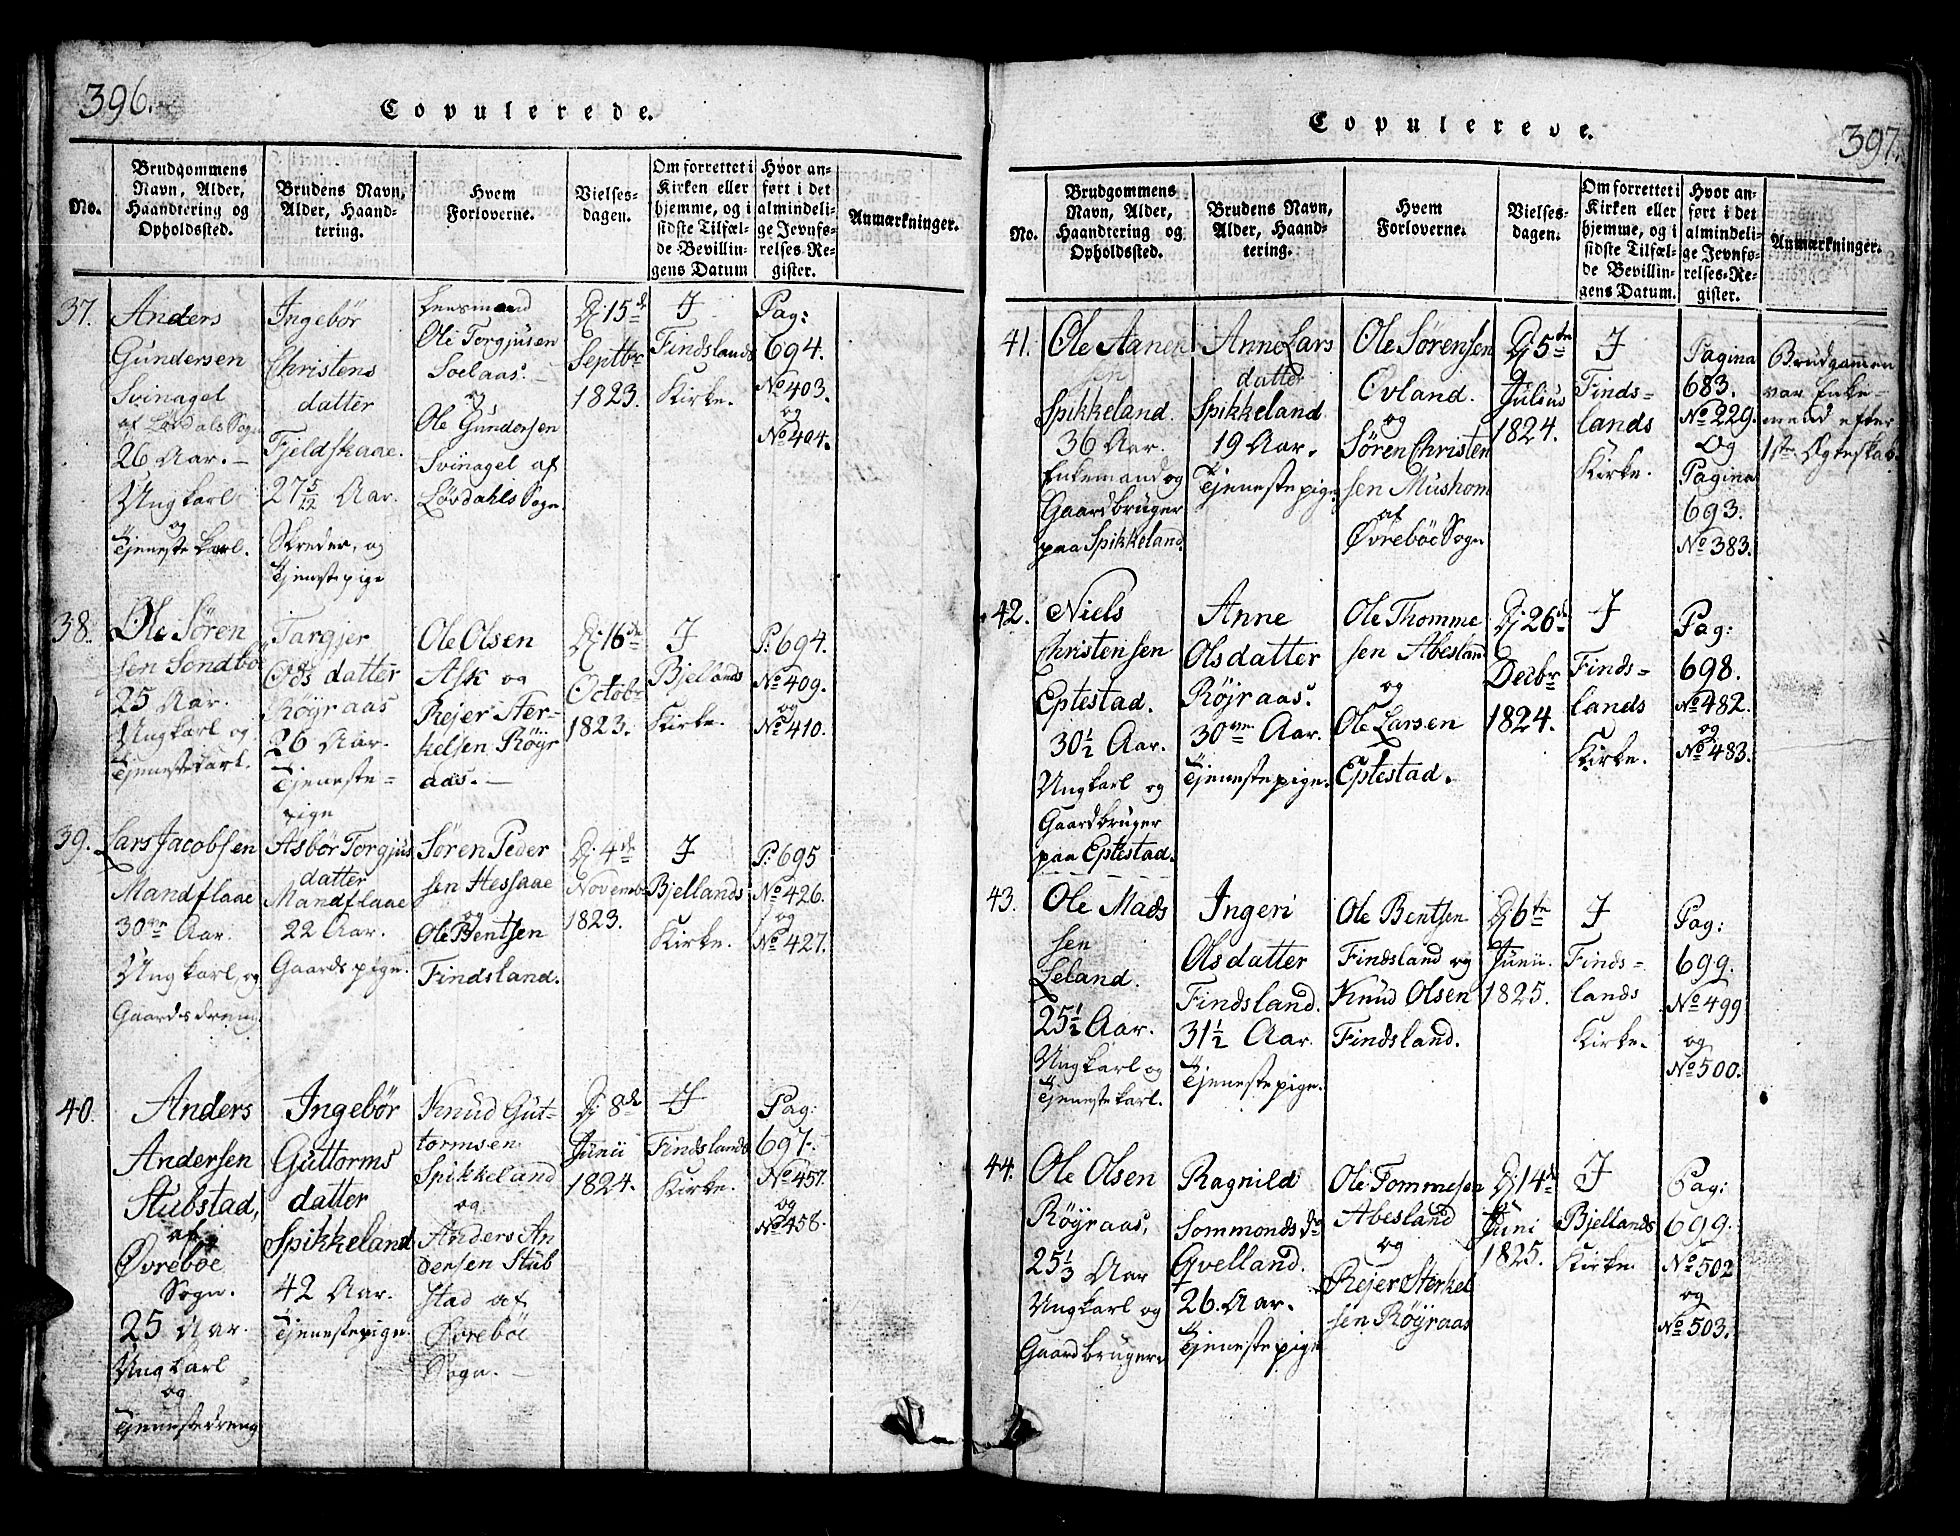 396.
Copulerede.
No.
Brudgommens
Navn, Alder,
Haandtering og
Opholdssted.
Brudens Navn,
Alder, Haand-
tering.
Hvem
Forloverne.
Vielses-
dagen.
Om forrettet i
Kirken eller
hjemme, og i
sidste Tilfæl-
de Bevillin-
gens Datum
Hvor an-
ført i det
almindeli-
ge Jevnfø-
relses-Re-
gister.
Anmærkninger.
37.
Anders
Gundersen
Svinagel
af Løvdals Sogn
26 Aar. –
Ungkarl
og
Tjenestekarl.
Ingebør
Christens
datter
Fjeldskaae.
27 5/12 Aar.
Skreder, og
Tjenestepige
Lensmand
Ole Torgjusen
Soelaas. –
og
Ole Gundersen
Svinagel af
Løvdahls Sogn
Dj 15de
Septbr
1823.
I
Findslands
Kirke.
Pag:
694.
No 403.
og
No 404.
38.
Ole Søren
sen Sondbø
25 Aar.
Ungkarl og
Tjenestekarl.
Targjer
Ols datter
Röyraas
26 Aar.
Tjeneste=
pige
Ole Olsen
Ask og
Rejer Ster-
kelsen Röyr
aas. –
Dj 16de
Octobr
1823.
I
Bjellands
Kirke.
P: 694.
No 409.
og
No 410.
39.
Lars Jacobsen
Mandflaae
30ve Aar.
Ungkarl, og
Gaardsdreng.
Asbør Torgjus
datter
Mandflaae
22 Aar.
Gaardspige.
Søren Peder
sen Hessaae
og
Ole Bentsen
Findsland.
Dj 4de
Novembr
1823.
I
Bjellands
Kirke.
P: 695
No 426.
og
No 427.
40.
Anders
Andersen
Stubstad,
af
Øvrebøe
Sogn.
25 Aar.
Ungkarl
og
Tjenestedreng
Ingebør
Guttorms
datter
Spikkeland
42 Aar.
Tjenestepige.
Knud Gut-
tormsen
Spikkeland
og
Anders An
dersen Stub
stad af
Øvrebøe
Sogn. –
Dj 8de
Junii
1824.
I
Findslands
Kirke.
Pag:
697.
No 457.
og
No 458.
397.
Copulerede.
No.
Brudgommens
Navn, Alder,
Haandtering og
Opholdssted.
Brudens Navn,
Alder, Haand-
tering.
Hvem
Forloverne.
Vielses-
dagen.
Om forrettet i
Kirken eller
hjemme, og i
sidste Tilfæl-
de Bevillin-
gens Datum.
Hvor an-
ført i det
almindeli-
ge Jevnfø-
relses-Re-
gister.
Anmærkninger.
41.
Ole Aanen
sen
Spikkeland.
36 Aar.
Enkemand og
Gaardbruger
paa Spikkeland.
Anne Lars
datter
Spikkeland
19 Aar.
Tjenestepige.
Ole Sørensen
Øvland.
og
Søren Christen
sen Mushom
af
Øvrebøe Sogn
Dj 5te
Julius
1824.
I
Finds=
lands
Kirke.
Pagina
683.
No 229.
Og
Pagina
693.
No 383.
Brudgomen
var Enke=
mand efter
1ste Ægteskab.
42.
Niels
Christensen
Eptestad.
30 1/2 Aar.
Ungkarl og
Gaardbruger
paa Eptestad.
Anne
Olsdatter
Röjraas.
30ve Aar.
Tjenestepige.
Ole Thomme
sen Abesland
og
Ole Larsen
Eptestad.
Dj 26de
Decbr
1824.
I
Finds=
lands
Kirke.
Pag:
698.
No 482.
og
No 483.
43.
Ole Mads
sen
Leland.
25 1/2 Aar.
Ungkarl og
Tjenestekarl.
Ingeri
Olsdatter
Findsland.
31 1/2 Aar.
Tjenestepige.
Ole Bentsen
Findsland og
Knud Olsen
Findsland.
Dj 6te
Junii.
1825.
I
Finds=
lands
Kirke.
Pag:
699.
No 499
og
No 500.
44.
Ole Olsen
Röyraas,
25 1/3 Aar
Ungkarl og
Gaardbruger
Ragnild
Sommonds dr
Qvelland.
26. Aar.
Tjenestepige
Ole Tommesen
Abesland
og
Rejer Sterkel
sen Röyraas
Dj 14de
Juni
1825.
I
Bjellands
Kirke.
Pag:
699.
No 502
og
No 503.